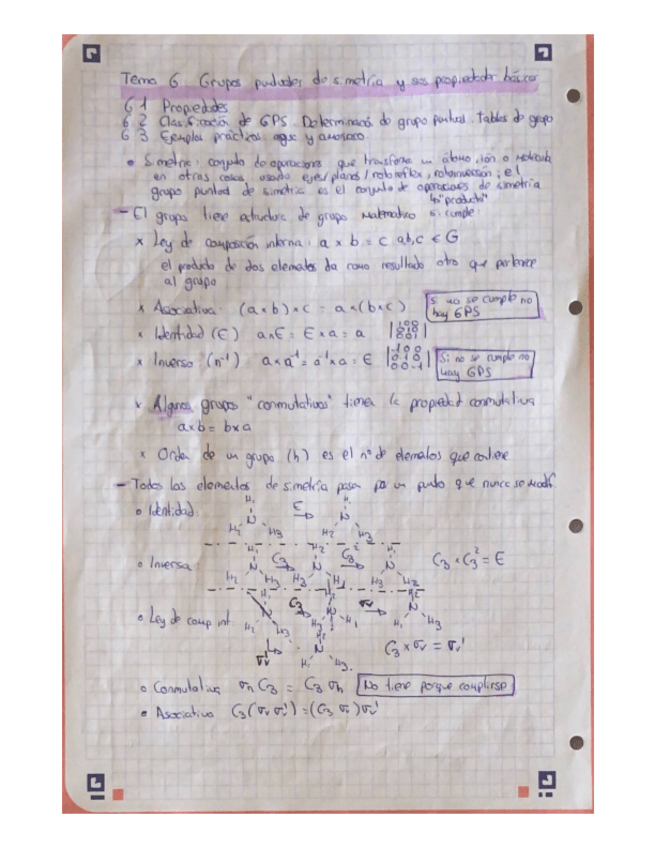 Tema 6 Grupos puntuales de simetría y sus propiedades básicas
6 1 Propiedades
6 2 Clasificación de GPS. Determinamos do grupo puntual. Tablas do grupo
6 3 Ejemplos prácticos: agua y amoniaco
• Simetría: conjunto de operaciones que transforma un átomo, ión o molécula
en otras cosas usando ejes/planos/rotoreflex, rotoinversión; el
grupo puntual de simetría es el conjunto de operaciones de simetría
"producto"
- El grupo tiene estructura de grupo matemático si cumple:
x Ley de composición interna: a x b = c a,b,c ∈ G
el producto de dos elementos da como resultado otro que pertenece
al grupo
x Asociativa: (a x b) x c = a x (b x c) Si no se cumple no
hay GPS
x Identidad (E) a x E = E x a = a |100 010 001|
x Inverso (n⁻¹) a x a⁻¹ = a⁻¹ x a = E |-100 0-10 00-1| Si no se cumple no
hay GPS
x Algunos grupos "conmutativos" tienen la propiedad conmutativa
a x b = b x a
x Orden de un grupo (h) es el nº de elementos que contiene
- Todos los elementos de simetría pasan por un punto que nunca se modif.
o Identidad: E
H₁ N H₂ H₃ H₁ N H₂ H₃
o Inversa C₃ C₃² C₃ x C₃² = E
H₁ N H₂ H₃ H₂ N H₃ H₁ H₁ N H₃ H₂
o Ley de comp int. C₃ σv
N H₂ H₃ N H₃ H₁ N H₃
C₃ x σv = σv'
σv' N H₁ H₃
o Conmutativa σh C₃ = C₃ σh No tiene porque cumplirse
• Asociativa C₃(σv σv') = (C₃ σv) σv'